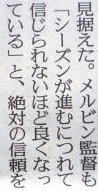 見据えた。メルビン監督も
「シーズンが進むにつれて
信じられないほど良くなっ
ている」と、絶対の信頼を